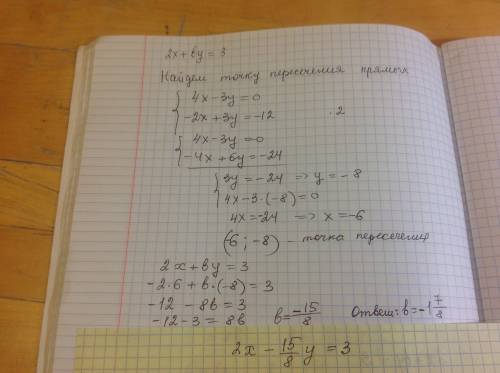 2x + by = 3
Найдем точку пересечения прямых
{ 4x - 3y = 0
-2x + 3y = -12 ·2
{ 4x - 3y = 0
-4x + 6y = -24
{ 3y = -24 => y = -8
4x - 3·(-8) = 0
4x = -24 => x = -6
(-6; -8) - точка пересечения
2x + by = 3
-2·6 + b·(-8) = 3
-12 - 8b = 3
-12 - 3 = 8b b = -15/8 Ответ: b = -1 7/8
2x - 15/8 y = 3